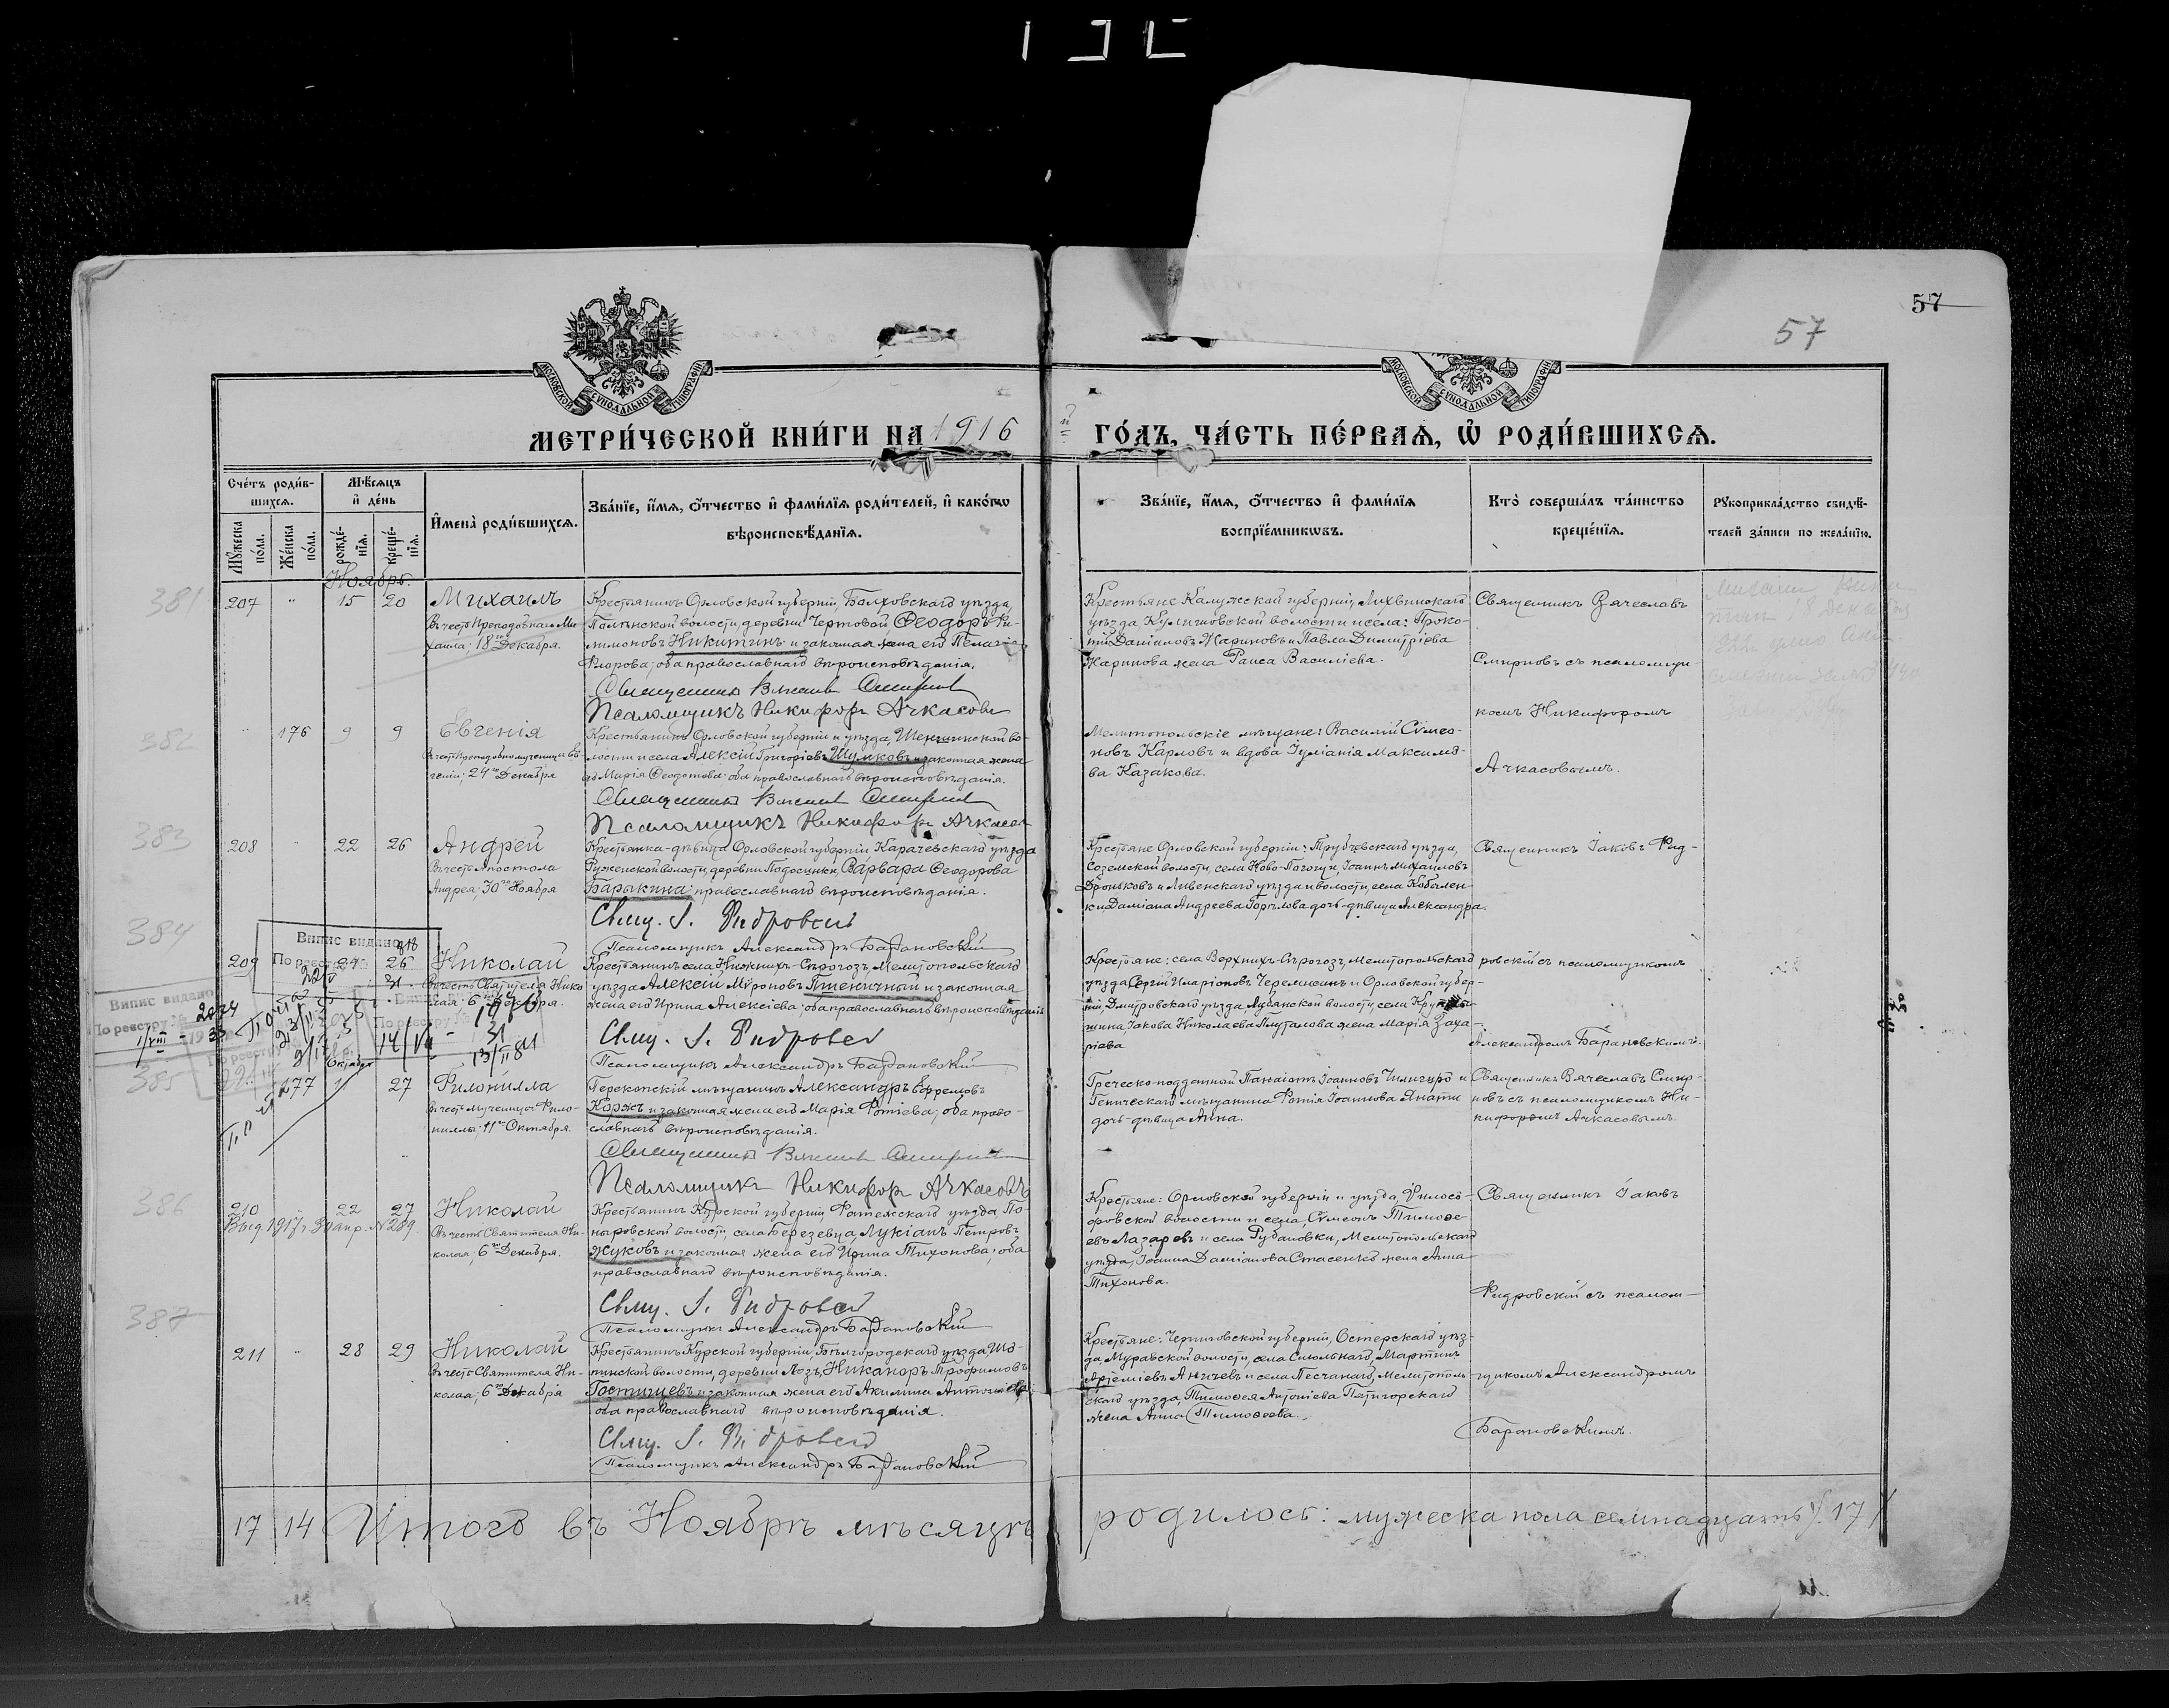 57
57
МОСКОВСКОЙ СѴНОДАЛЬНОЙ ТИПОГРАФІИ
МЕТРИ́ЧЕСКОЙ КНИ́ГИ НА 1916 й ГО́ДЪ, ЧА́СТЬ ПЕ́РВАѦ, Ѡ҆ РОДИ́ВШИХСѦ.
Сче́тъ роди́в-
шихсѧ.
Мꙋ́жеска по́ла.
Же́нска по́ла.
Мѣ́сѧцъ
и҆ де́нь
рожде́-нїѧ.
креще́-нїѧ.
И҆мена̀ роди́вшихсѧ.
Зва́нїе, и҆́мѧ, ѻ҆́тчество и҆ фами́лїѧ роди́телей, и҆ како́гѡ
вѣроисповѣ́данїѧ.
Зва́нїе, и҆́мѧ, ѻ҆́тчество и҆ фами́лїѧ
воспрїе́мникѡвъ.
Кто̀ соверша́лъ та́инство
креще́нїѧ.
Рꙋкоприкла́дство свидѣ́-
телей за́писи по жела́нїю.
Ноябрь.
381
207 " 15 20 Михаилъ
Въ честь Преподобнаго Ми-
хаила; 18го Декабря.
Крестьянинъ Орловской губерніи, Болховскаго уѣзда,
волости, деревни Чертовой Ѳеодоръ Фи-
лимоновъ Никитинъ и законная жена его Пелагія
Флорова; оба православнаго вѣроисповѣданія.
Священникъ Вячеслав Смирнов
Псаломщикъ Никифор Ачкасовъ
Крестьяне Калужской губерніи, Лихвинскаго
уѣзда, Кулишовской волости и села: Проко-
пій Даніиловъ Жариновъ и Павла Димитріева
Жаринова жена Раиса Василіева.
Священникъ Вячеславъ
Смирновъ съ псаломщи-
комъ Никифоромъ
Ачкасовымъ.
382
" 176 9 9 Евгенія
Въ честь Преподобномученицы Ев-
геніи; 24го Декабря
Крестьянинъ Орловской губерніи и уѣзда, во-
лости и села Алексій Григоріевъ Шумковъ и законная жена
его Марія Ѳеодотова; оба православнаго вѣроисповѣданія.
Священникъ Вячеслав Смирнов
Псаломщикъ Никифор Ачкасов
Мелитопольскіе мѣщане: Василій Сѵмео-
новъ Карловъ и вдова Іуліанія Максимо-
ва Казакова.
383
208 " 22 26 Андрей
Въ честь Апостола
Андрея; 30го Ноября
Крестьянка-дѣвица Орловской губерніи Карачевскаго уѣзда
Руженской волости, деревни Подосинки, Варвара Ѳеодорова
Барыкина; православнаго вѣроисповѣданія.
Свщ. І. Фидровскій
Псаломщикъ Александръ Барановскій
Крестьяне Орловской губерніи: Трубчевскаго уѣзда,
волости, села Ново-Погощи, Іоаннъ Михаиловъ
Дроньковъ и Ливенскаго уѣзда и волости, села Кобылен-
ки Даміана Андреева Горѣлова дочь-дѣвица Александра.
Священникъ Іаковъ Фид-
ровскій съ псаломщикомъ
Александромъ Барановскимъ.
384
209 24 26 Николай
Въ честь Святителя Нико-
лая; 6го Декабря.
Крестьянинъ села Нижнихъ-Сѣрогозъ, Мелитопольскаго
уѣзда Алексій Мѵроновъ Пшеничный и законная
жена его Ирина Алексіева; оба православнаго вѣроисповѣданія
Свщ. І. Фидровскій
Псаломщикъ Александръ Барановскій
Крестьяне: села Верхнихъ-Сѣрогозъ, Мелитопольскаго
уѣзда Сергій Иларіоновъ Черемисинъ и Орловской губер-
ніи, Дмитровскаго уѣзда, Лубянской волости, села
Іакова Николаева жена Марія Заха-
ріева
Випис видано
По реєстру №
Випис видано
По реєстру № 2074
1/VIII - 33
1970
14/VII - 31
13/II 81
385
177 Октября 27 Филонилла
Въ честь Мученицы Фило-
ниллы; 11го Октября.
Перекопскій мѣщанинъ Александръ Ефремовъ
Коржъ и законная жена его Марія Фотіева; оба право-
славнаго вѣроисповѣданія.
Священникъ Вячеслав Смирнов
Псаломщикъ Никифор Ачкасовъ
Греческо-подданный Панаіотъ Іоанновъ и
Геническаго мѣщанина Фотія Іоаннова Янати
дочь-дѣвица Анна.
Священникъ Вячеславъ Смир-
новъ съ псаломщикомъ Ни-
кифоромъ Ачкасовымъ.
386
210 " 22 27 Николай
Выд. 1917 г. 30 апр. №289.
Въ честь Святителя Ни-
колая; 6го Декабря.
Крестьянинъ Курской губерніи, Фатежскаго уѣзда, По-
ныровской волости, села Березевца Лукіанъ Петровъ
Жуковъ и законная жена его Ирина Тихонова; оба
православнаго вѣроисповѣданія.
Свщ. І. Фидровскій
Псаломщикъ Александръ Барановскій
Крестьяне: Орловской губерніи и уѣзда, Филосо-
фовской волости и села, Сѵмеонъ Тимоѳе-
евъ Лазаревъ и села Рубановки, Мелитопольскаго
уѣзда, Іоанна Даміанова Стасенко жена Анна
Тихонова.
Священникъ Іаковъ
Фидровскій съ псалом-
щикомъ Александромъ
Барановскимъ.
387
211 " 28 29 Николай
Въ честь Святителя Ни-
колая; 6го Декабря
Крестьянинъ Курской губерніи, Бѣлгородскаго уѣзда, Шо-
пинской волости, деревни Лозъ, Никаноръ Трофимовъ
Гостищевъ и законная жена его Акилина Антоніева;
оба православнаго вѣроисповѣданія.
Свщ. І. Фидровскій
Псаломщикъ Александръ Барановскій
Крестьяне: Черниговской губерніи, Остерскаго уѣз-
да, Муравской волости, села Мартинъ
Артеміевъ и села Песчанаго, Мелитополь-
скаго уѣзда, Тимоѳея Антоніева Пятигорскаго
жена Анна Тимоѳеева.
17 14 Итого въ Ноябрѣ мѣсяцѣ родилось: мужеска пола семнадцать /17/